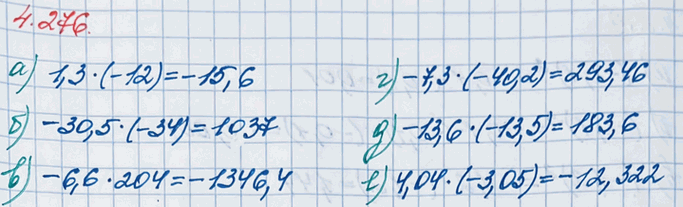 4.276.
а) 1,3·(-12)=-15,6
б) -30,5·(-34)=1037
в) -6,6·204=-1346,4
г) -7,3·(-40,2)=293,46
д) -13,6·(-13,5)=183,6
е) 4,04·(-3,05)=-12,322